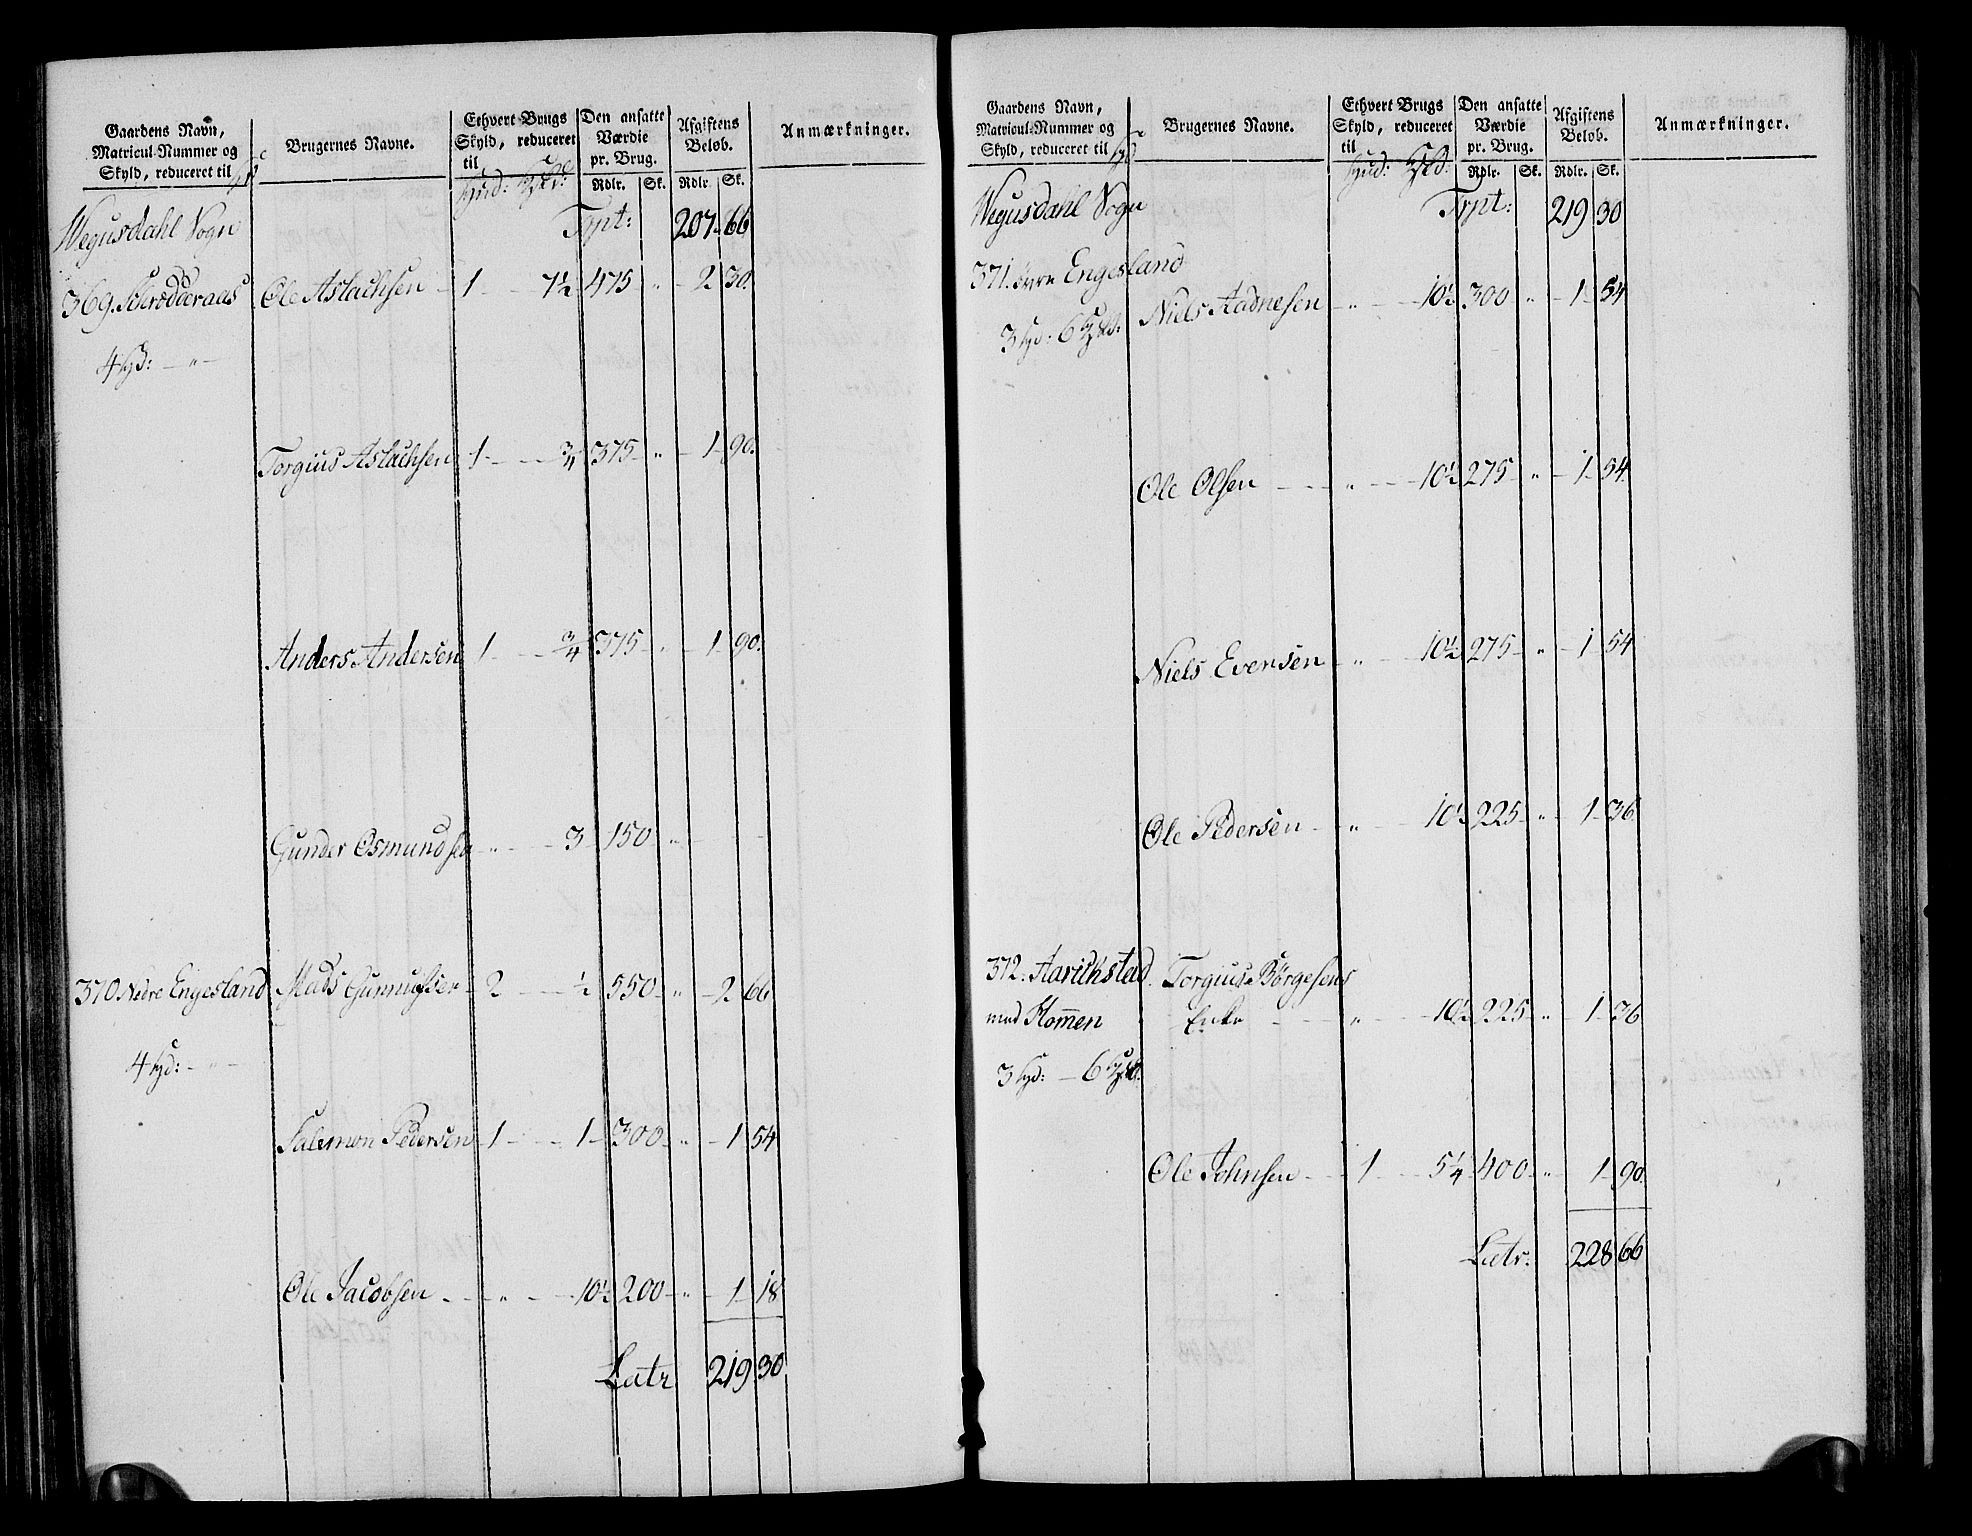 Gaardens Navn,
Matricul-Nummer og
Skyld, reduceret til
Brugernes Navne.
Ethvert Brugs
Skyld, reduceret
til
Den ansatte
Værdie
pr. Brug.
Rdlr. Sk.
Afgiftens
Beløb.
Rdlr. Sk.
Anmærkninger.
Wegusdahl Sogn Trpt: 207 66
369. Schrodderaas Ole Aslachsen 1 7½ 475 " 2 30.
4 hd: "
Torgius Aslachsen 1 ¾ 375 " 1 90.
Anders Andersen 1 ¾ 375 " 1 90.
Gunder Osmundsen " 3 150 "
370 Nedre Engesland Mads Gunnufsen 2 ½ 550 " 2 66
4 hd: "
Salemon Pedersen 1 1 300 " 1 54
Ole Jacobsen " 10½ 200 " 1 18
Latr 219 30
Gaardens Navn,
Matricul-Nummer og
Skyld, reduceret til
Brugernes Navne.
Ethvert Brugs
Skyld, reduceret
til
Den ansatte
Værdie
pr. Brug.
Rdlr. Sk.
Afgiftens
Beløb.
Rdlr. Sk.
Anmærkninger.
Wegusdahl Sogn Trpt: 219 30
371. øvre Engesland
Niels Aadnesen " 10½ 300 " 1 54
3 hd: 6
Ole Olsen " 10½ 275 " 1 54.
Niels Evensen " 10½ 275 " 1 54
Ole Pedersen " 10½ 225 " 1 36
372. Aarichstad Torgius Børgesens
med Homen Enke " 10½ 225 " 1 36
3 hd: 6
Ole Johnsen 1 5¼ 400 " 1 90.
Latr: 228 66